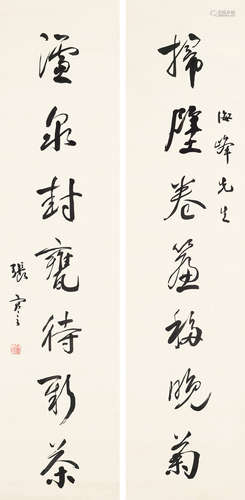 海峰先生
掃壁卷簾移晚菊
濾泉封甕待新茶
張